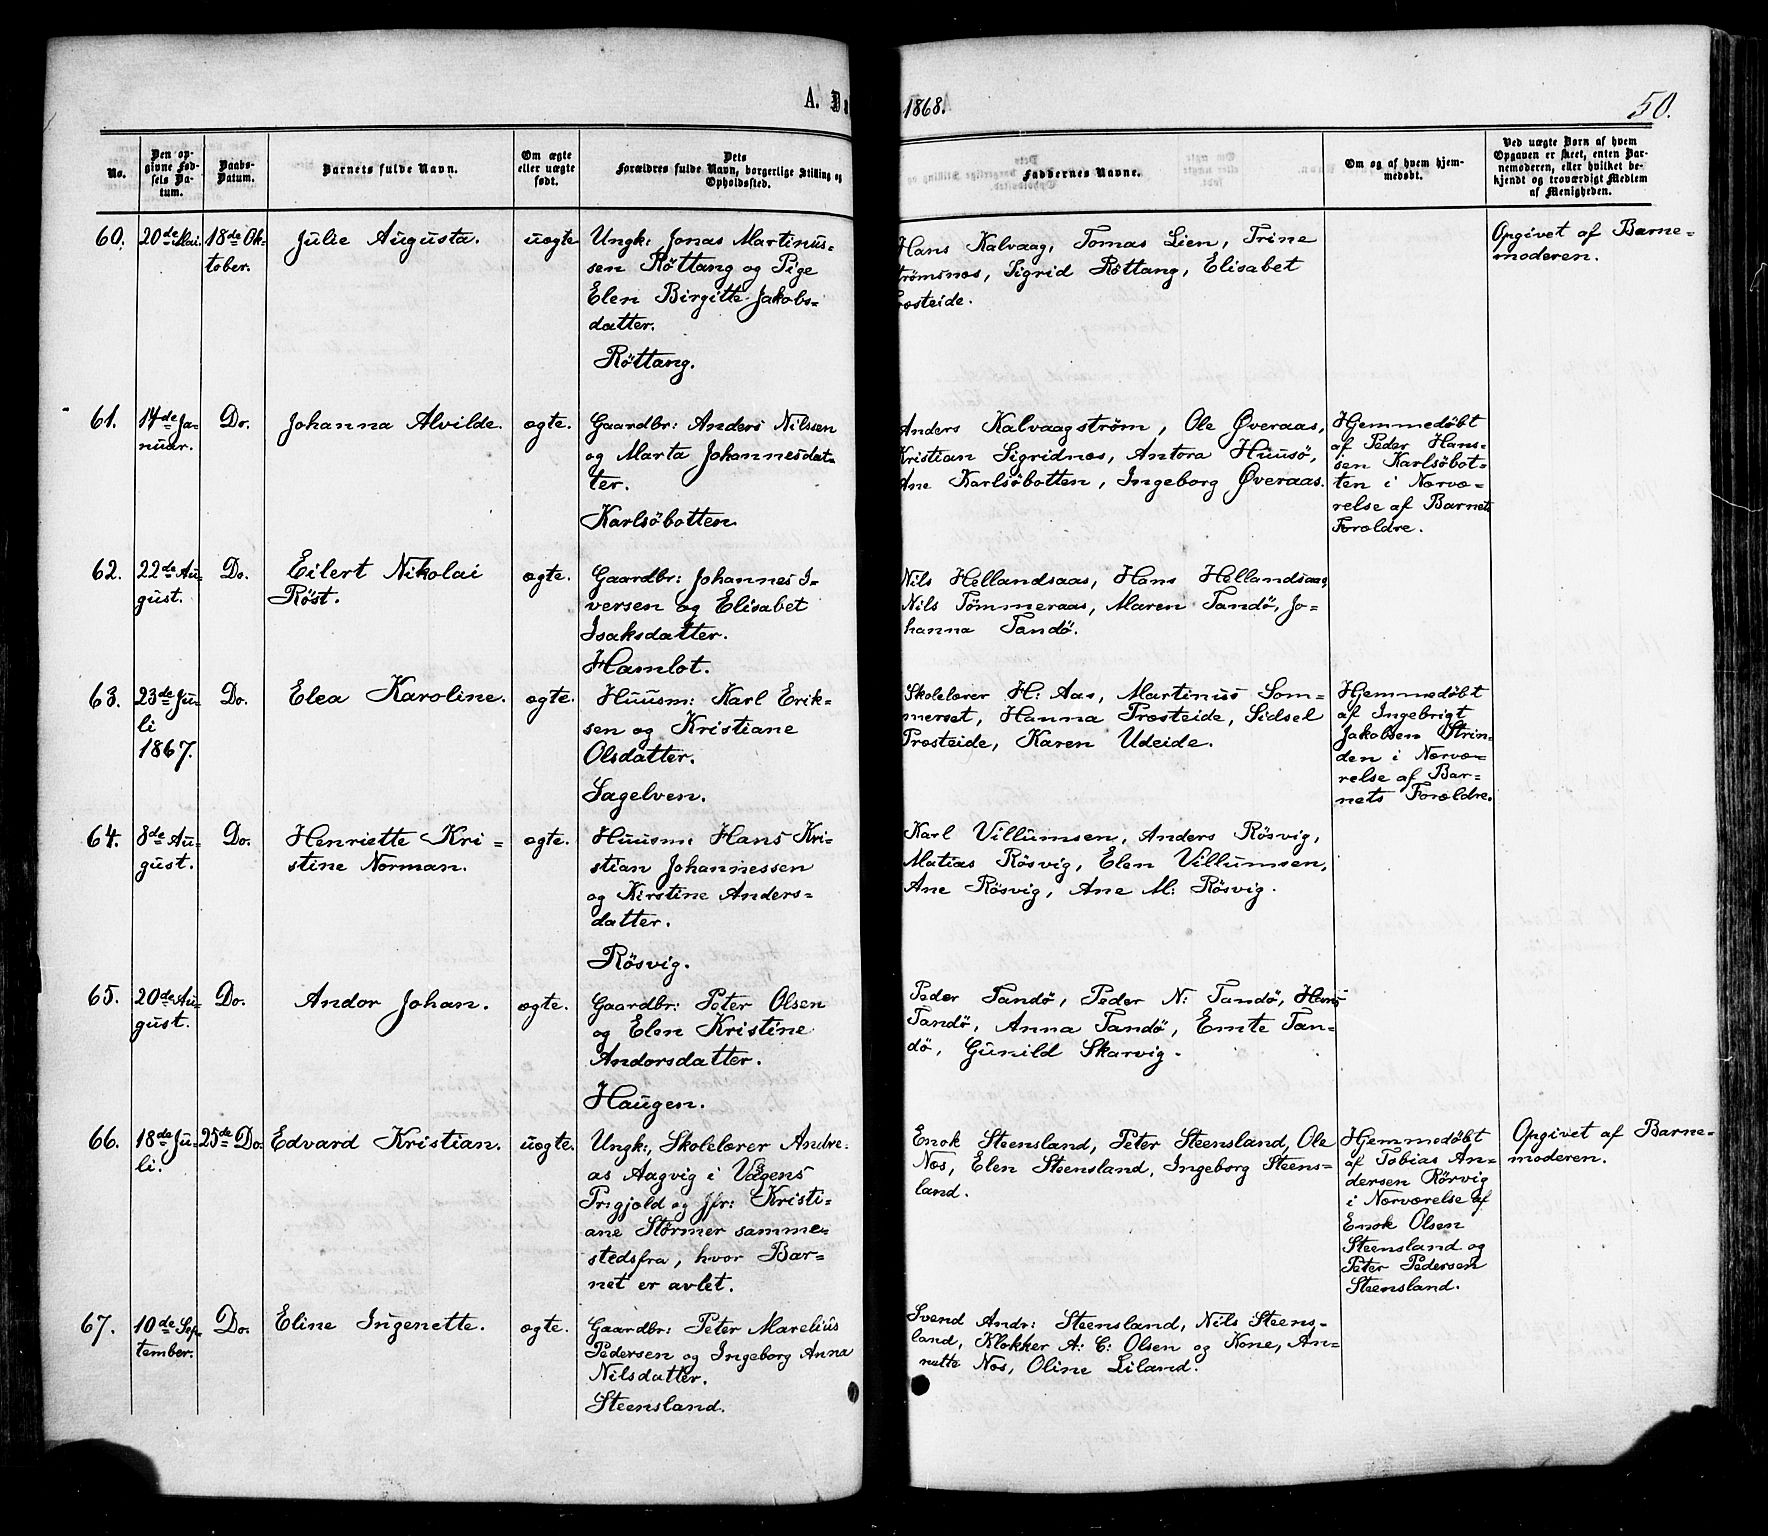 A. Dø
1868.
50.
No.
Den op-
givne Fød-
sels Da-
tum.
Daabs-
Datum.
Barnets fulde Navn.
Om ægte
eller uægte
født.
Dets
Forældres fulde Navn, borgerlige Stilling og
Opholdssted.
Faddernes Navne.
Om og af hvem hjem-
medøbt.
Ved uægte Børn af hvem
Opgaven er skeet, enten Bar-
nemoderen, eller hvilket be-
kjendt og troværdigt Medlem
af Menigheden.
60.
20de Mai.
18de Ok-
tober.
Julie Augusta.
uægte
Ungk: Jonas Martinus-
sen Røttang og Pige
Elen Birgitte Jakobs-
datter.
Røttang.
Hans Kalvaag, Tomas Lien, Trine
Strømsnæs, Sigrid Røttang, Elisabet
Præsteide.
Opgivet af Barne-
moderen.
61.
14de Ja-
nuar.
Do.
Johanna Alvilde.
ægte.
Gaardbr: Anders Nilssen
og Marta Johannesdat-
ter.
Karlsøbotten
Anders Kalvaagstrøm, Ole Øveraas,
Kristian Sigridnæs, Antora Huusø,
Ane Karlsøbotten, Ingeborg Øveraas.
Hjemmedøbt
af Peder Hans-
sen Karlsøbot-
ten i Nærvæ-
relse af Barnets
Forældre.
62.
22de Au-
gust.
Do.
Eilert Nikolai
Røst.
ægte.
Gaardbr: Johannes I-
versen og Elisabet
Isaksdatter.
Hamlot.
Nils Hellandsaas, Hans Hellandsaas,
Nils Tømmeraas, Maren Tandø, Jo-
hanna Tandø.
63.
23de Ju-
li
1867.
Do.
Elea Karoline.
ægte.
Huusm: Karl Erik-
sen og Kristiane
Olsdatter.
Sagelven.
Skolelærer H: Aas, Martinus Som-
merset, Hanna Præsteide, Sidsel
Præsteide, Karen Udeide.
Hjemmedøbt
af Ingebrigt
Jakobsen Strin-
den i Nærvæ-
relse af Bar-
nets Forældre.
64.
8de Au-
gust.
Do.
Henriette Kri-
stine Norman.
ægte.
Huusm: Hans Kri-
stian Johannessen
og Kirstine Anders-
datter.
Røsvig.
Karl Villumsen, Anders Røsvig,
Matias Røsvig, Elen Villumsen,
Ane Røsvig, Ane M: Røsvig.
65.
20de Au-
gust.
Do.
Andor Johan.
ægte.
Gaardbr: Peter Olsen
og Elen Kristine
Andorsdatter.
Haugen.
Peder Tandø, Peder N: Tandø, Hans
Tandø, Anna Tandø, Emte Tan-
dø, Gunild Skarvig.
66.
18de Ju-
li.
25de Do.
Edvard Kristian.
uægte.
Ungk:, Skolelærer Andre-
as Aagvig i Vaagens
Prgjæld og Jfr: Kristi-
ane Størmer samme-
stedsfra, hvor Bar-
net er avlet.
Enok Steensland, Peter Steensland, Ole
Næs, Elen Steensland, Ingeborg Steens-
land.
Hjemmedøbt
af Tobias An-
dersen Rørvig
i Nærværelse af
Enok Olsen
Steensland og
Peter Pedersen
Steensland.
Opgivet af Barne-
moderen.
67.
10de Sep-
tember.
Do.
Eline Ingenette.
ægte.
Gaardbr: Peter Marelius
Pedersen og Ingeborg Anna
Nilsdatter.
Steensland.
Svend Andr: Steensland, Nils Steens-
land, Klokker A: C: Olsen og Kone, An-
nette Næs, Oline Liland.